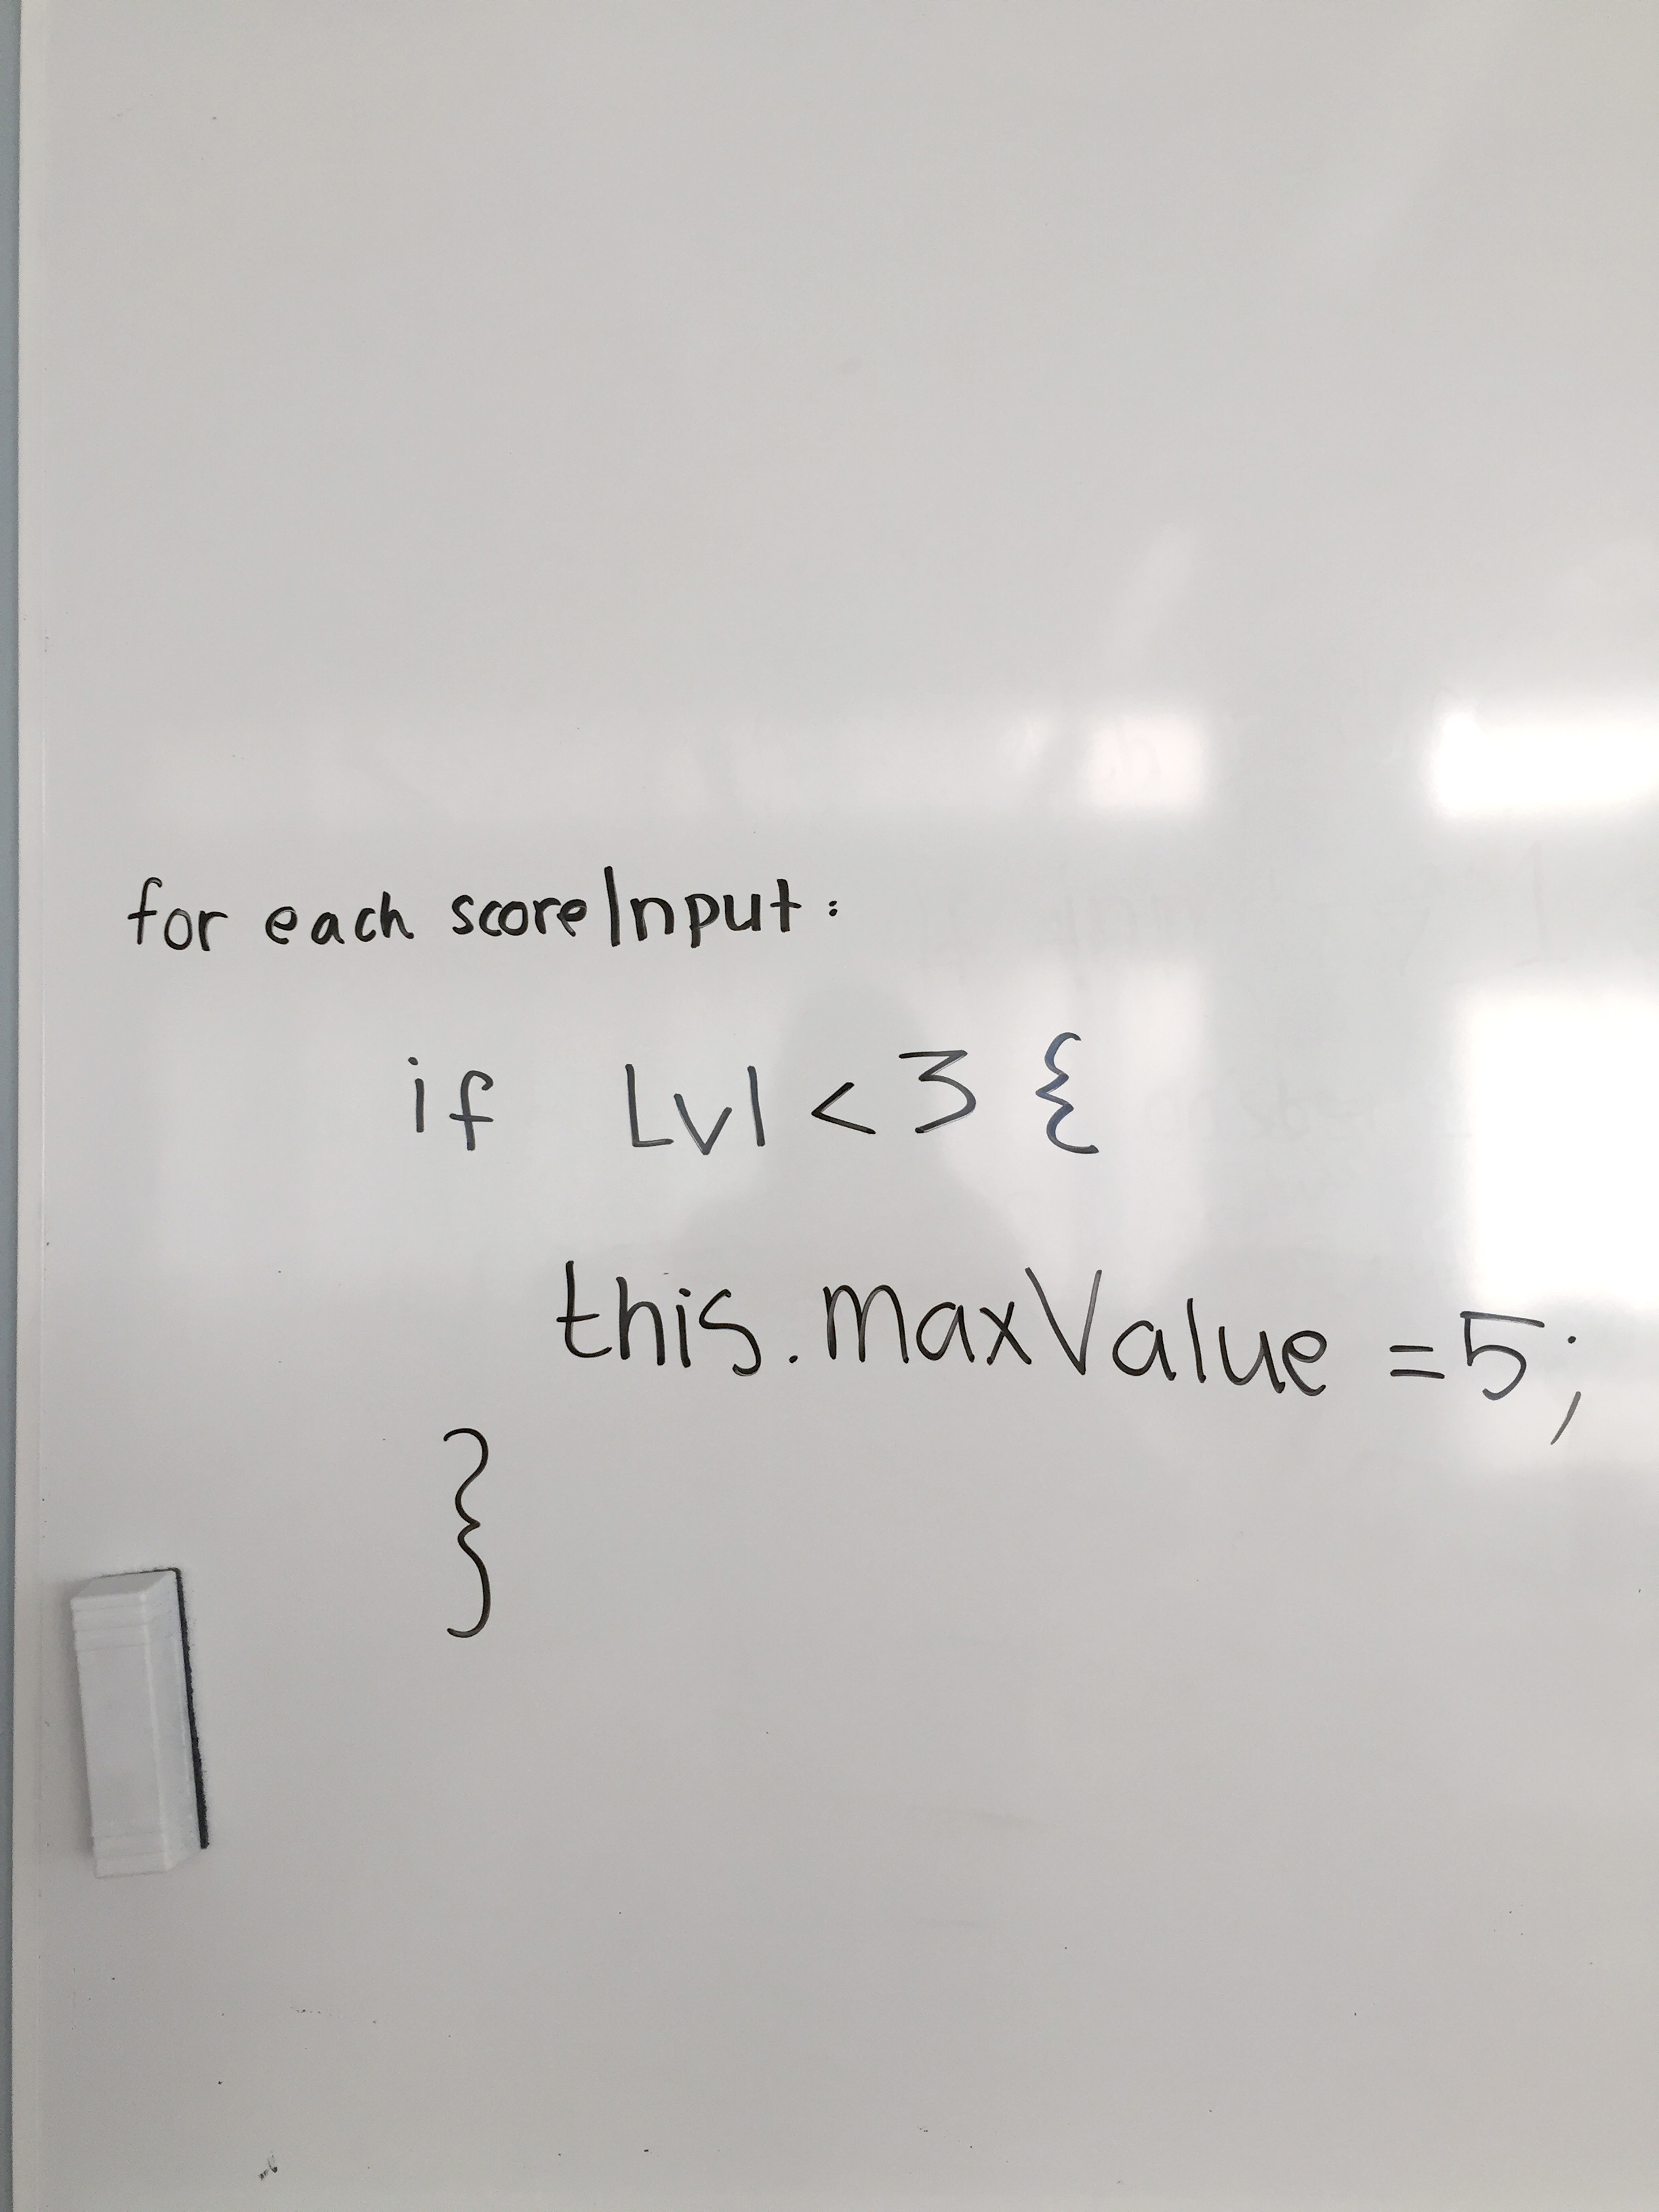 for each scoreInput:
if Lvl < 3 {
this.maxValue = 5;
}